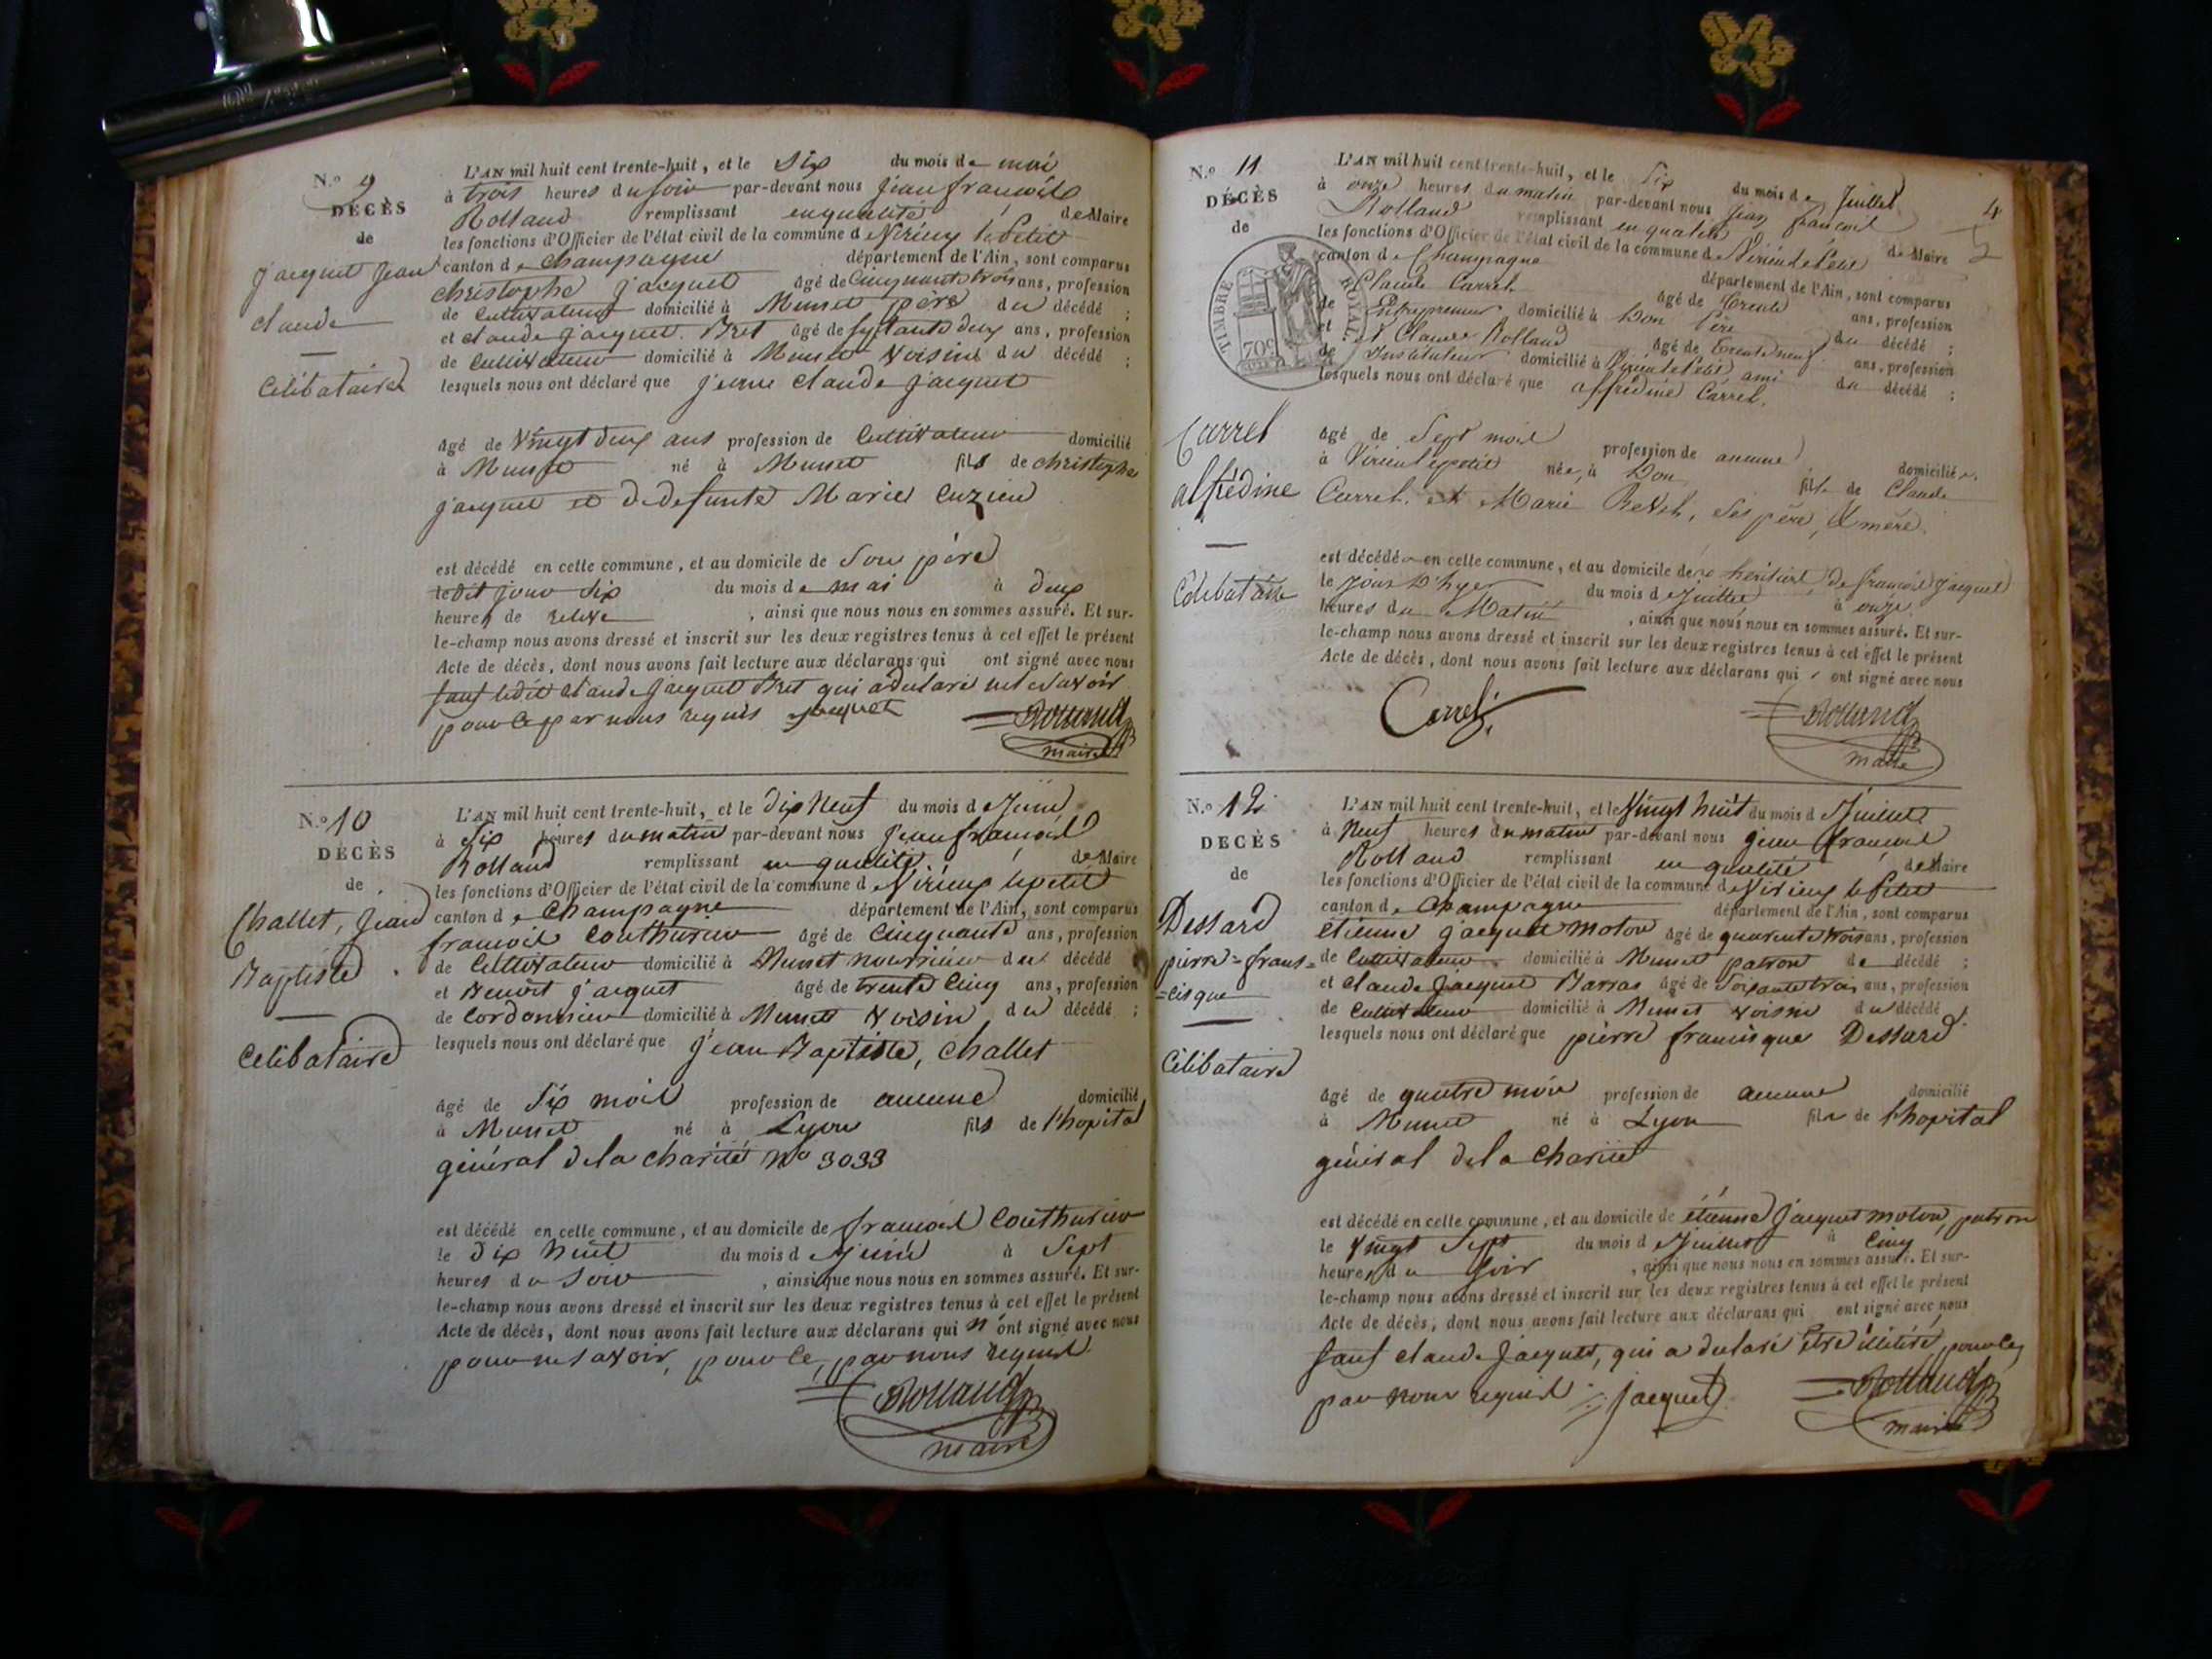 N.º 9
DÉCÈS
de
jacquet jean
claude
célibataire
L'AN mil huit cent trente-huit, et le Six du mois de mai
à trois heures du soir par-devant nous jean françois
Rolland remplissant en qualité de Maire
les fonctions d'Officier de l'état civil de la commune d Virieux le Petit
canton de Champagne département de l'Ain, sont comparus
christophe jacquet âgé de Cinquante trois ans, profession
de Cultivateur domicilié à Munet père du décédé ;
et claude jacquet Bret âgé de Septante deux ans, profession
de Cultivateur domicilié à Munet voisin du décédé ;
lesquels nous ont déclaré que jean claude jacquet
âgé de Vingt deux ans profession de Cultivateur domicilié
à Munet né à Munet fils de christophe
jacquet et de defunte Marie Cuzieu
est décédé en cette commune, et au domicile de Son père
ledit jour Six du mois de mai à deux
heures de relevé, ainsi que nous nous en sommes assuré. Et sur-
le-champ nous avons dressé et inscrit sur les deux registres tenus à cet effet le présent
Acte de décès, dont nous avons fait lecture aux déclarans qui ont signé avec nous
sauf ledit claude jacquet Bret qui a déclaré ne savoir
pour ce par nous requis jacquet Rolland
maire
N.º 10
DÉCÈS
de
Challet, Jean
Baptiste
Célibataire
L'AN mil huit cent trente-huit, et le dix Neuf du mois d Juin
à Six heures du matin par-devant nous jean françois
Rolland remplissant en qualité de Maire
les fonctions d'Officier de l'état civil de la commune d Virieux le petit
canton de Champagne département de l'Ain, sont comparus
françois Couthurier âgé de Cinquante ans, profession
de Cultivateur domicilié à Munet nourricier du décédé
et Benoit jacquet âgé de trente Cinq ans, profession
de Cordonnier domicilié à Munet voisin du décédé ;
lesquels nous ont déclaré que jean Baptiste, Challet
âgé de Six mois profession de aucune domicilié
à Munet né à Lyon fils de l'hopital
général de la charité No 3033
est décédé en cette commune, et au domicile de françois Couthurier
le dix huit du mois d juin à Sept
heures du Soir, ainsi que nous nous en sommes assuré. Et sur-
le-champ nous avons dressé et inscrit sur les deux registres tenus à cet effet le présent
Acte de décès, dont nous avons fait lecture aux déclarans qui n'ont signé avec nous
pour ne savoir, pour ce, par nous requis
Rolland
maire
4
N.º 11
DÉCÈS
de
TIMBRE ROYAL
70c
Carrel
alfrédine
Célibataire
L'AN mil huit cent trente-huit, et le Six du mois de Juillet
à onze heures du matin par-devant nous Jean françois
Rolland remplissant en qualité de Maire
les fonctions d'Officier de l'état civil de la commune d Virieu le Petit
canton de Champagne département de l'Ain, sont comparus
Claude Carrel âgé de trente ans, profession
de Entrepreneur domicilié à Don Père du décédé ;
et Claude Rolland âgé de trente neuf ans, profession
de Instituteur domicilié à Virieu le Petit ami du décédé ;
lesquels nous ont déclaré que alfrédine Carrel.
âgé de Sept mois profession de aucune domiciliée
à Virieu le petit née, à Don fille de Claude
Carrel. et Marie, Ses père, & mère.
est décédée en cette commune, et au domicile de héritiers de françois jacquet
le jour d'hyer du mois d Juillet à onze
heures du Matin, ainsi que nous nous en sommes assuré. Et sur-
le-champ nous avons dressé et inscrit sur les deux registres tenus à cet effet le présent
Acte de décès, dont nous avons fait lecture aux déclarans qui ont signé avec nous
Carrel Rolland
maire
N.º 12
DÉCÈS
de
Dessard
pierre=frans=
=cisque
Célibataire
L'AN mil huit cent trente-huit, et le Vingt huit du mois d Juillet
à Neuf heures du matin par-devant nous jean françois
Rolland remplissant en qualité de Maire
les fonctions d'Officier de l'état civil de la commune d Virieux le Petit
canton de Champagne département de l'Ain, sont comparus
étienne jacquet moton âgé de quarente trois ans, profession
de Cultivateur domicilié à Munet patron de décédé ;
et claude Jacquet Barras âgé de Soixante trois ans, profession
de Cultivateur domicilié à Munet voisin du décédé
lesquels nous ont déclaré que pierre francisque Dessard
âgé de quatre mois profession de aucune domicilié
à Munet né à Lyon fils de l'hopital
général de la charité
est décédé en cette commune, et au domicile de étienne Jacquet moton, patron
le vingt Sept du mois d Juillet à Cinq
heures du Soir, ainsi que nous nous en sommes assuré. Et sur-
le-champ nous avons dressé et inscrit sur les deux registres tenus à cet effet le présent
Acte de décès, dont nous avons fait lecture aux déclarans qui ont signé avec nous
sauf claude Jacquet, qui a déclaré être illitéré, pour ce,
par nous requis jacquet Rolland
maire